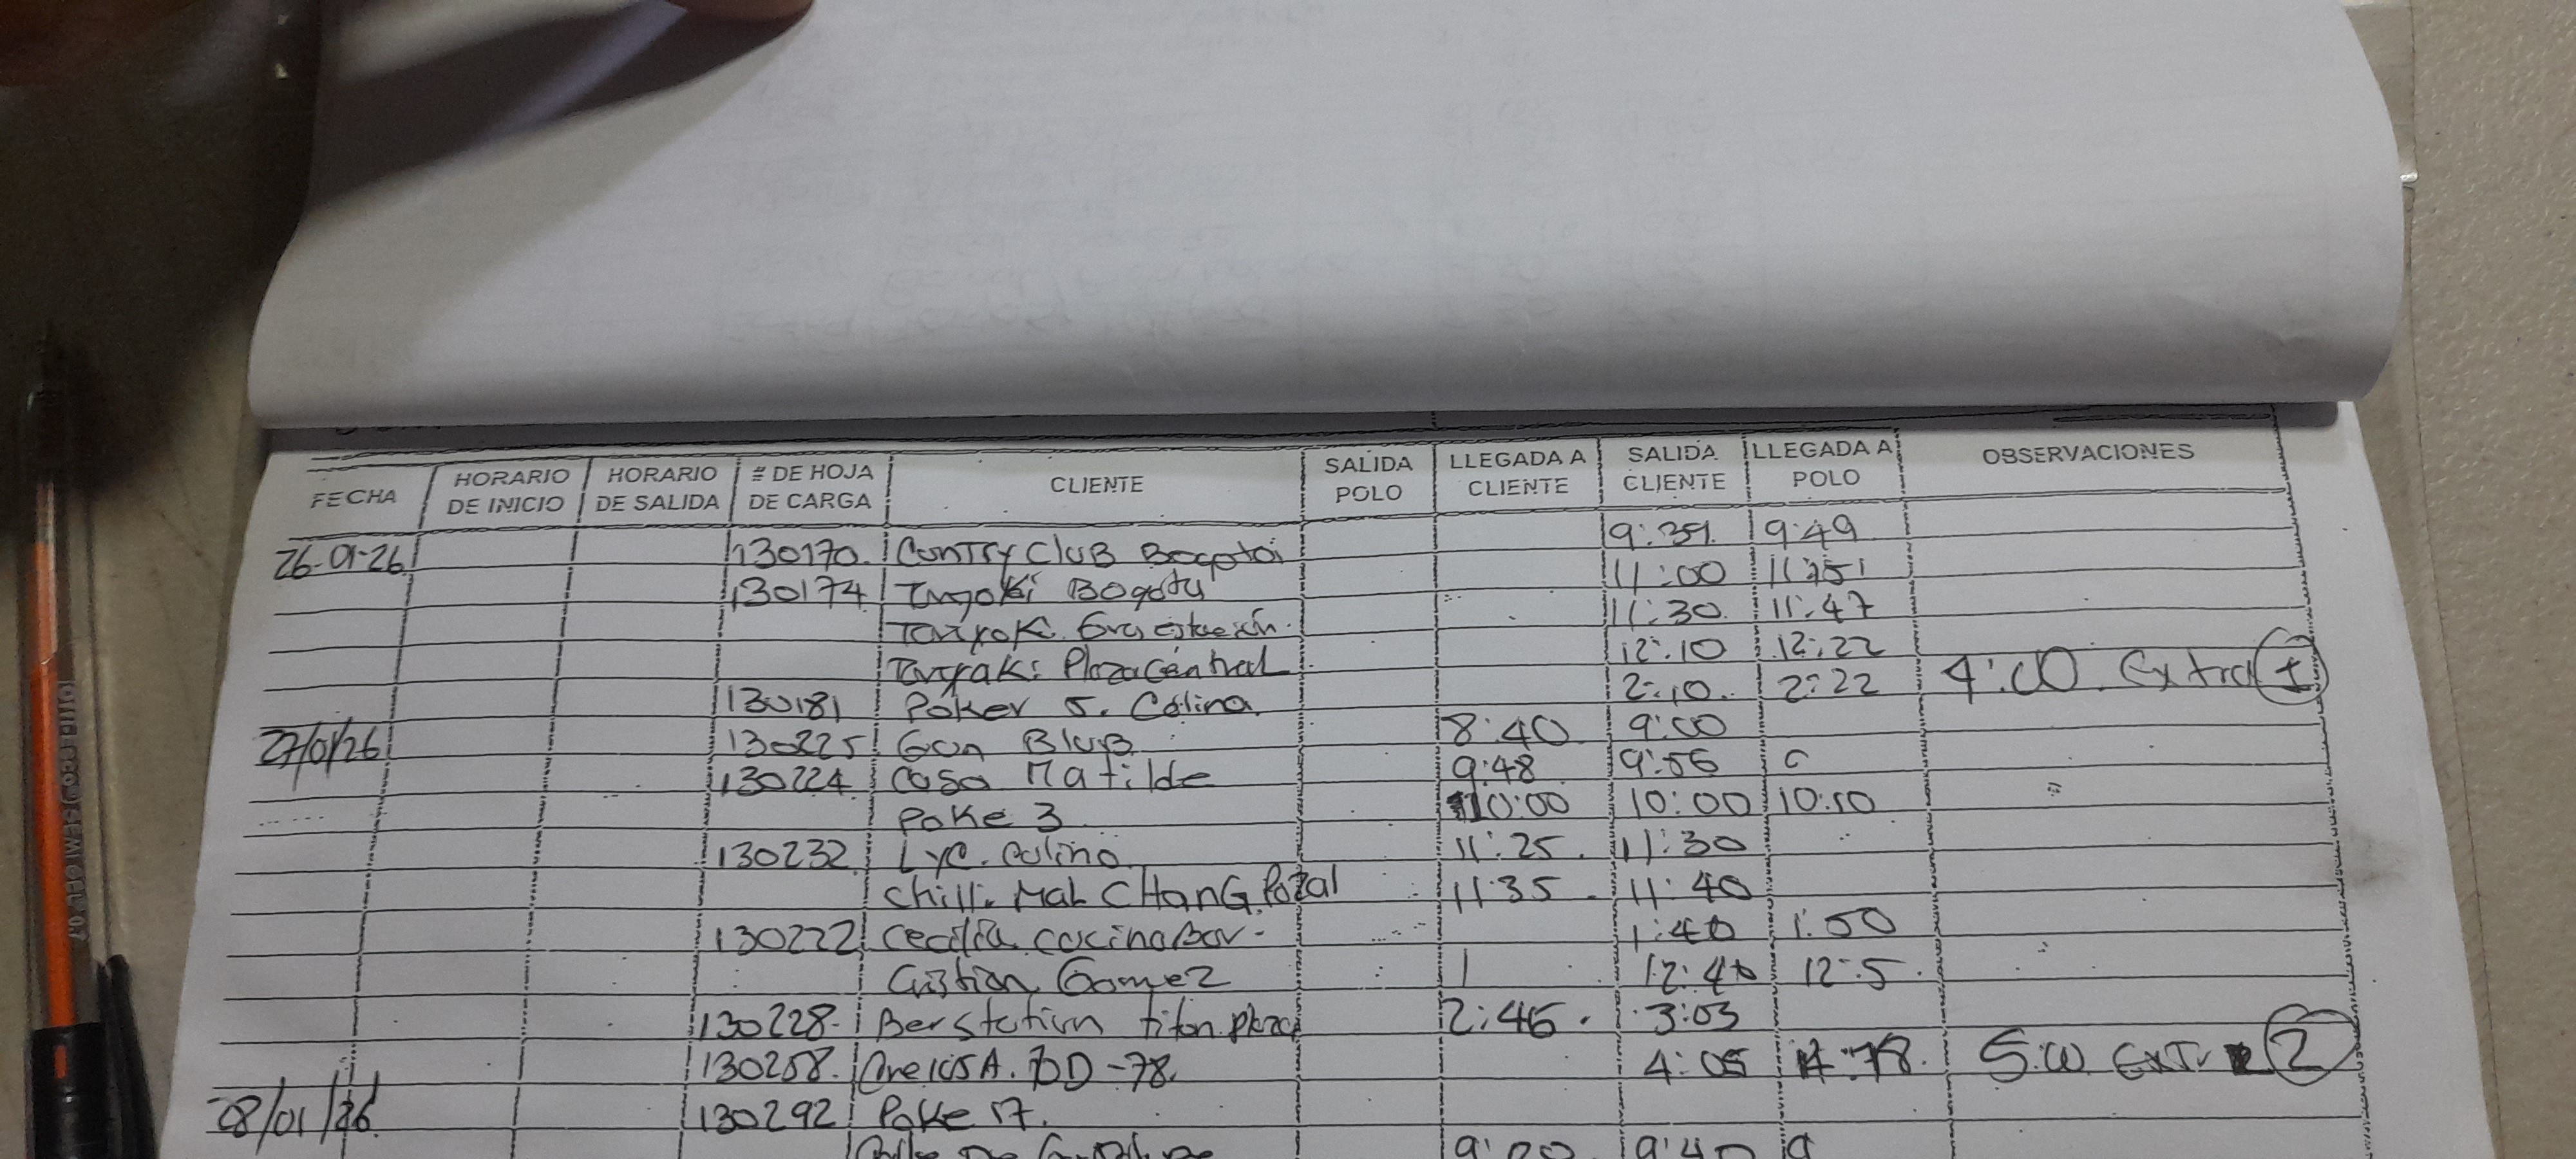 FECHA HORARIO DE INICIO HORARIO DE SALIDA # DE HOJA DE CARGA CLIENTE SALIDA POLO LLEGADA A CLIENTE SALIDA CLIENTE LLEGADA A POLO OBSERVACIONES
26-01-26 130170 Contry Club Bogota 9:39 9:49
130174 Bogota 11:00
11:30 11:47
Plaza Central 12:10 12:22
130181 Poker 5. Colina 2:10 2:22 4:00 Extra 1
27/01/26 130225 Gun Blub 8:40 9:00
130224 Casa Matilde 9:48 9:56
Poke 3 10:00 10:00 10:10
130232 LyC. Colina 11:25 11:30
Chilli Mal CHanG 11:35 11:40
130222 Cecilia cocina Bar 1:40 1:50
Cristian Gomez 12:40 12:5
130228 Berstation titan plaza 2:46 3:03
130258 4:05 5:00 Extr 2
28/01/26 130292 Poke 17.
9:40